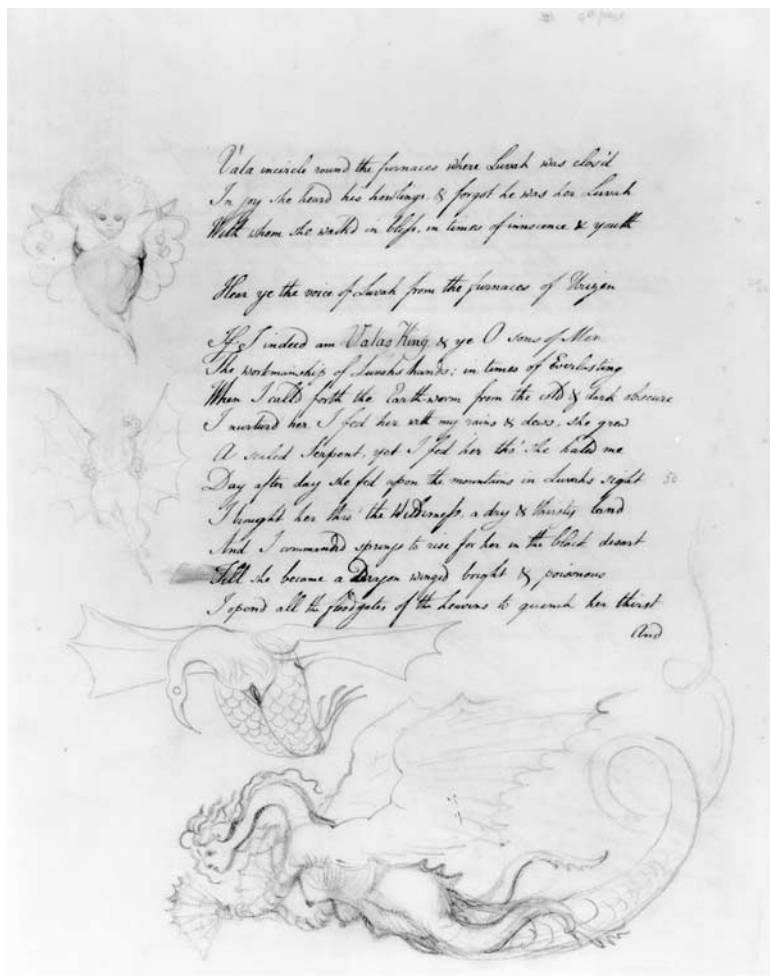 Vala incircle round the furnaces where Luvah was clos'd
In joy she heard his howlings, & forgot he was her Luvah
With whom she walkd in bliss, in times of innocence & youth
Hear ye the voice of Luvah from the furnaces of Urizen
If I indeed am Valas King & ye O sons of Men
The workmanship of Luvahs hands; in times of Everlasting
When I calld forth the Earth-worm from the cold & dark obscure
I nurturd her I fed her with my rains & dews, she grew
A scaled Serpent, yet I fed her tho' she hated me
Day after day she fed upon the mountains in Luvahs sight
50
I brought her thro' the Wilderness, a dry & thirsty land
And I commanded springs to rise for her in the black desart
Till she became a Dragon winged bright & poisonous
I opend all the floodgates of the heavens to quench her thirst
And